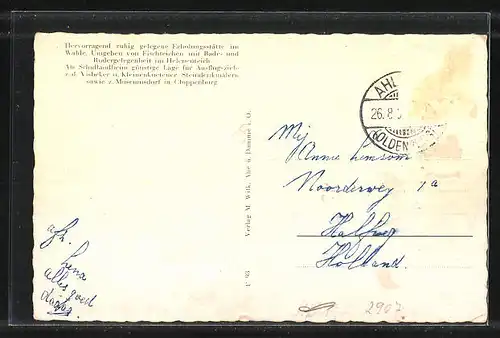 Hervorragend ruhig gelegene Erholungsstätte im
Walde. Umgeben von Fischteichen mit Bade- und
Rudergelegenheit im Helenenteich
Als Schullandheim günstige Lage für Ausflugsziele
z. d. Visbeker u. Kleinenknetener Steindenkmälern
sowie z. Museumsdorf in Cloppenburg
AHL
26.8.
(OLDEN
Mej
Annie
Noorderweg 1a
Halfweg
Holland.
Verlag M. Wilk, Ahe ü. Damme i. O.
afz.
Lena
alles goed
daag
2907